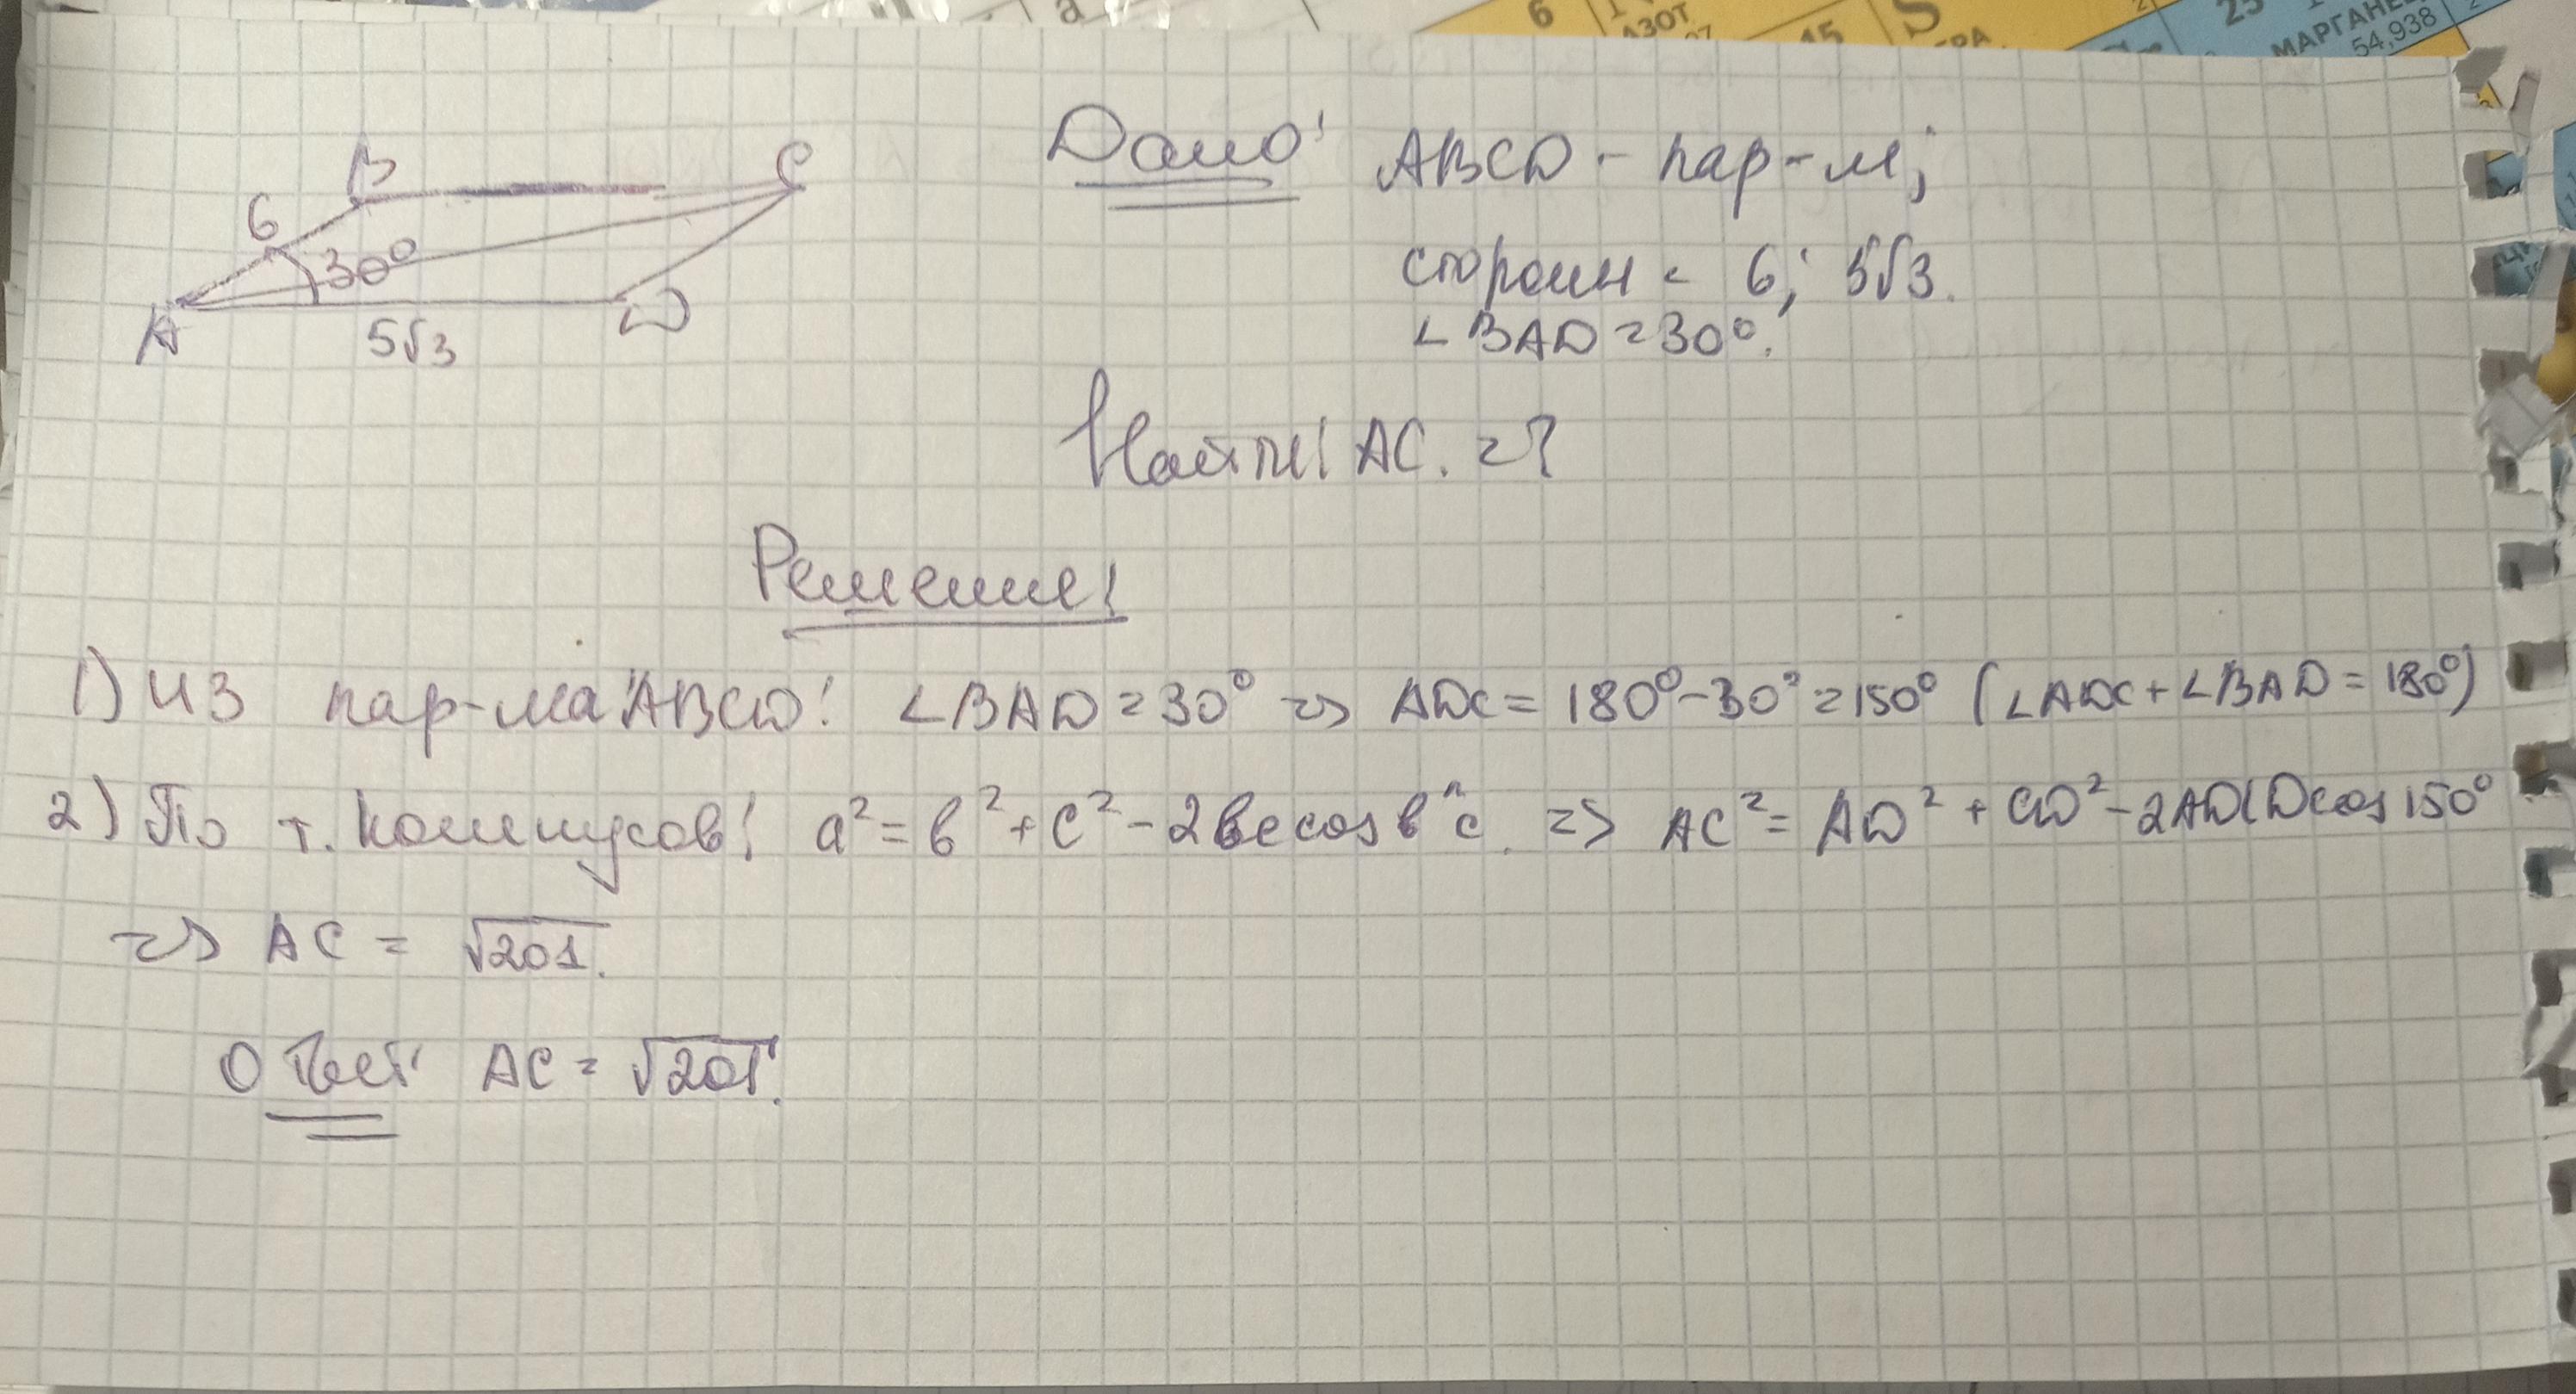 a
6
АЗОТ
15
S
25
МАРГАНЕЦ
54,938
B
C
6
30°
A
D
5√3
Дано: ABCD - пар-м;
сторон = 6; 5√3.
∠BAD = 30°.
Найти: AC. = ?
Решение:
1) из пар-ма ABCD: ∠BAD = 30° => ADC = 180° - 30° = 150° (∠ADC + ∠BAD = 180°)
2) По т. Косинусов: a² = b² + c² - 2bc cos b^c. => AC² = AD² + CD² - 2ADCDcos 150°
=> AC = √201.
Ответ: AC = √201.